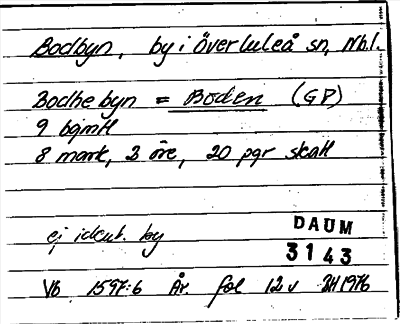 Bodbyn, by i Överluleå sn, Nb.l.
Bodhe byn = Boden (GP)
9 bgmH
8 mark, 3 öre, 20 pgr skatt
ej ident. by
DAUM
3143
VB 1597:6 År. fol 12v 2H 1976